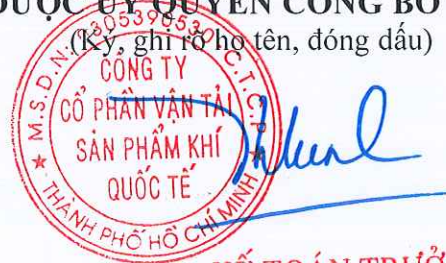 ĐƯỢC ỦY QUYỀN CÔNG BỐ
(Ký, ghi rõ họ tên, đóng dấu)
M.S.D.N: 0305390530 C.T.C.P
CÔNG TY
CỔ PHẦN VẬN TẢI
SẢN PHẨM KHÍ
QUỐC TẾ
THÀNH PHỐ HỒ CHÍ MINH
KẾ TOÁN TRƯỞ